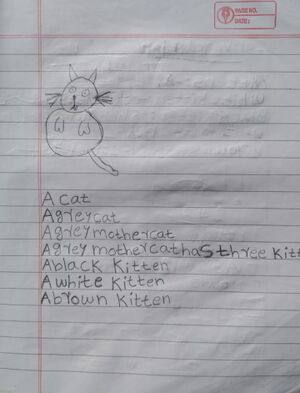 PAGE NO.
DATE:
A cat
A grey cat
A grey mother cat
A grey mother cat has three kitt
A black kitten
A white kitten
A brown kitten